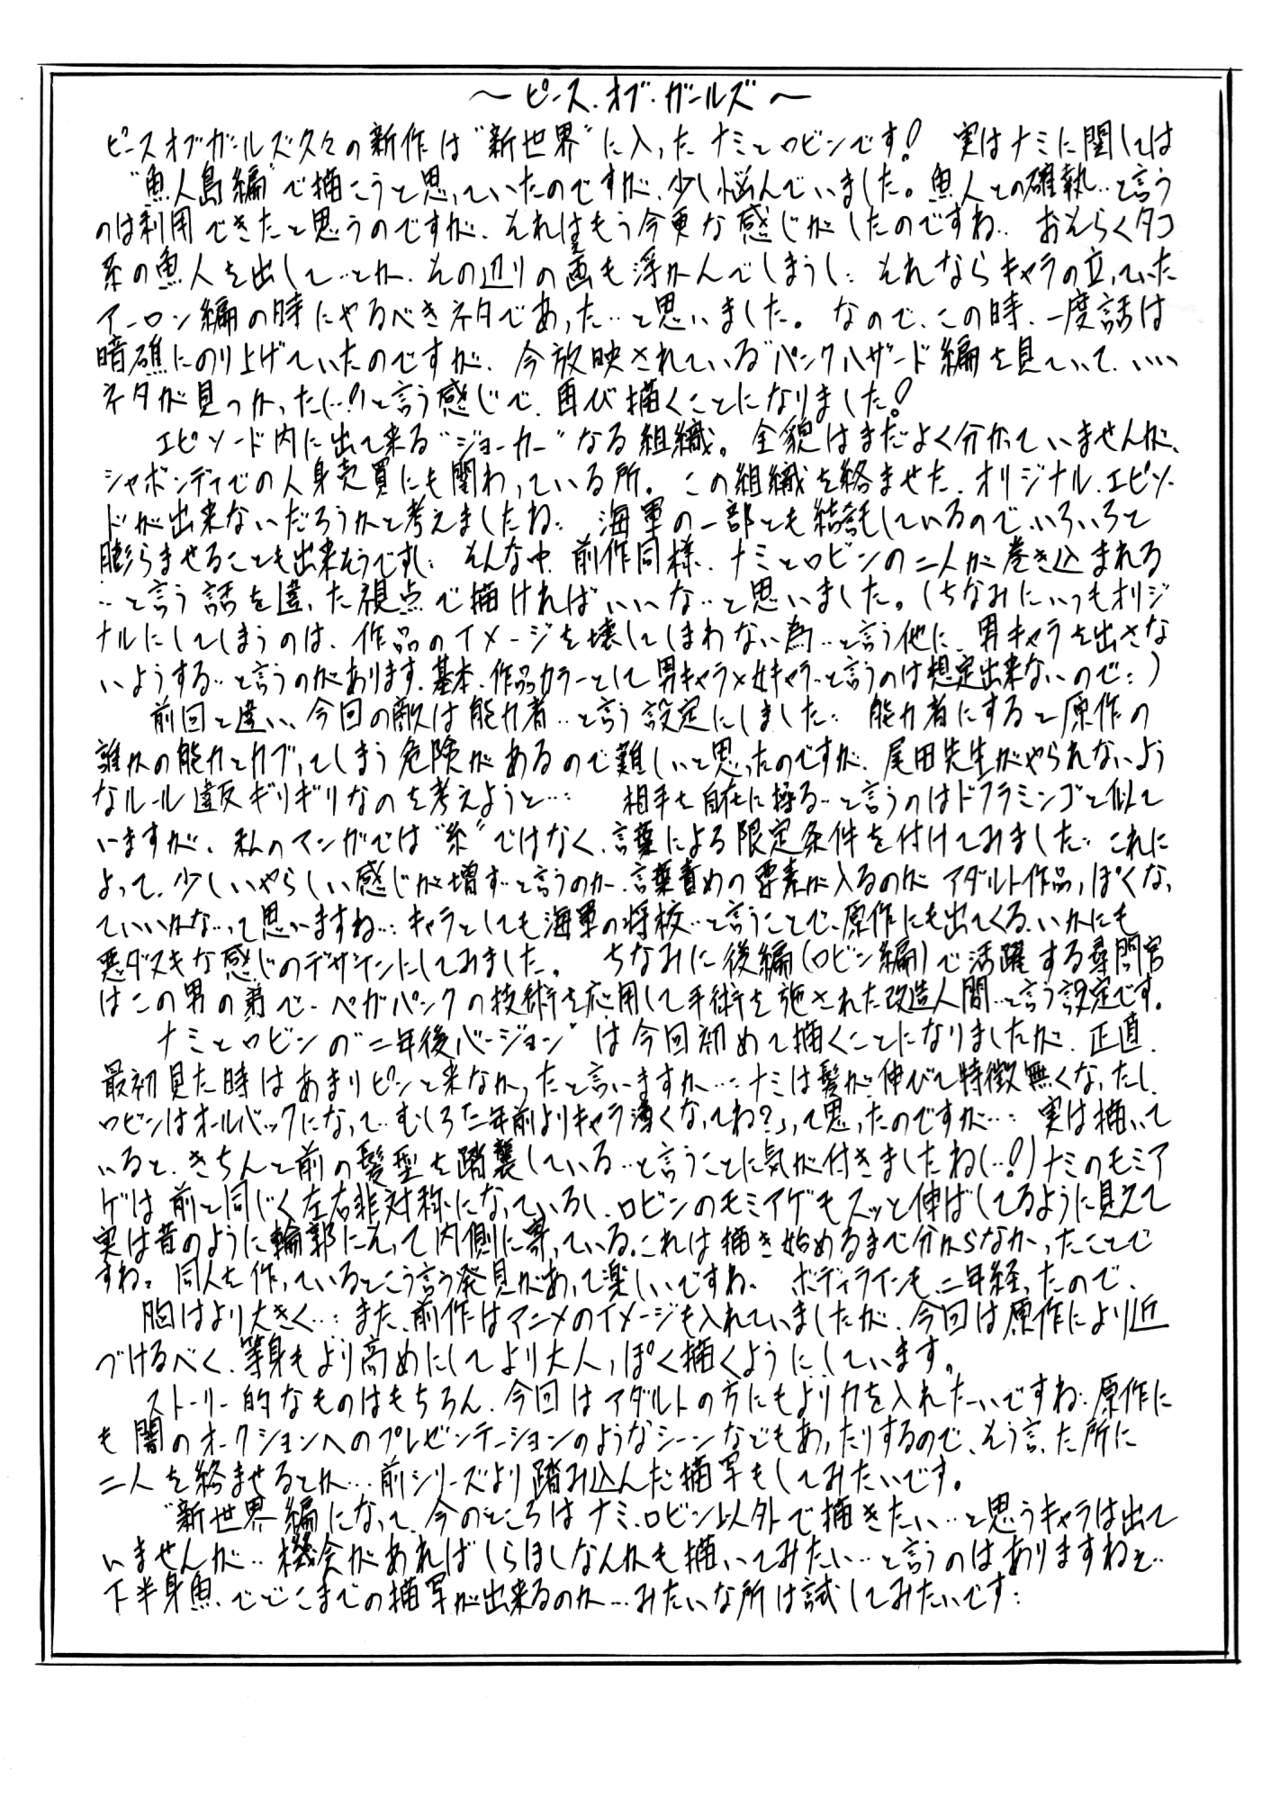 ～ピース・オブ・ガールズ～
ピースオブガールズ久々の新作は"新世界"に入ったナミとロビンです! 実はナミに関しては
"魚人島編"で描こうと思っていたのですが、少し悩んでいました。魚人との確執…と言う
のは利用できたと思うのですが、それはもう今更な感じがしたのですね… おそらくタコ
系の魚人を出して…とか、その辺りの画も浮かんでしまうし… それならキャラの立っていた
アーロン編の時にやるべきネタであった…と思いました。なので、この時、一度話は
暗礁にのり上げていたのですが、今放映されている"パンクハザード編"を見ていて、いい
ネタが見つかった(…!)と言う感じで、再び描くことになりました!
エピソード内に出て来る"ジョーカー"なる組織。全貌はまだよく分かっていませんが、
シャボンディでの人身売買にも関わっている所。この組織を絡ませた、オリジナル、エピソー
ドが出来ないだろうかと考えましたね… 海軍の一部とも結託しているので、いろいろと
膨らませることも出来そうですし… そんな中、前作同様、ナミとロビンの二人が巻き込まれる
…と言う話を違った視点で描ければいいな…と思いました。(ちなみにいつもオリジ
ナルにしてしまうのは、作品のイメージを壊してしまわない為…と言う他に、男キャラを出さな
いようする…と言うのがあります、基本、作品カラーとして男キャラ×女キャラ…と言うのは想定出来ないので…)
前回と違い、今回の敵は能力者…と言う設定にしました… 能力者にすると原作の
誰かの能力とカブってしまう危険があるので難しいと思ったのですが、尾田先生がやられないよう
なルール違反ギリギリなのを考えようと…… 相手を自在に操る…と言うのはドフラミンゴと似て
いますが、私のマンガでは"糸"ではなく、言葉による限定条件を付けてみました… これに
よって、少しいやらしい感じが増す…と言うのか、言葉責めの要素が入るのがアダルト作品っぽくなっ
ていいかな…って思いますね… キャラとしても海軍の将校…と言うことで、原作にも出てくる、いかにも
悪ダヌキな感じのデザインにしてみました。 ちなみに後編(ロビン編)で活躍する尋問官
はこの男の弟で、ベガパンクの技術を応用して手術を施された改造人間…と言う設定です。
ナミとロビンの"二年後バージョン"は今回初めて描くことになりましたが、正直、
最初見た時はあまりピンと来なかったと言いますか…… ナミは髪が伸びて特徴無くなったし、
ロビンはオールバックになって…むしろ「二年前よりキャラ薄くなってね?」って思ったのですが…… 実は描いて
いると、きちんと前の髪型を踏襲している…と言うことに気が付きましたね(…!)ナミのモミア
ゲは前と同じく左右非対称になっているし、ロビンのモミアゲもスッと伸ばしてるように見えて
実は昔のように輪郭にそって内側に寄っている。これは描き始めるまで分からなかったことで
すね。同人を作っているとこう言う発見があって楽しいですね。 ボディラインも、二年経ったので、
胸はより大きく…… また、前作はアニメのイメージも入れていましたが、今回は原作により近
づけるべく、等身もより高めにしてより大人っぽく描くようにしています。
ストーリー的なものはもちろん、今回はアダルトの方にもより力を入れたいですね。原作に
も闇のオークションへのプレゼンテーションのようなシーンなどもあったりするので、そう言った所に
二人を絡ませるとか…前シリーズより踏み込んだ描写もしてみたいです。
"新世界"編になって、今のところはナミ、ロビン以外で描きたい…と思うキャラは出て
いませんが… 機会があればしらほしなんかも描いてみたい…と言うのはありますねぇ…
下半身魚、でどこまでの描写が出来るのか…みたいな所は試してみたいです…